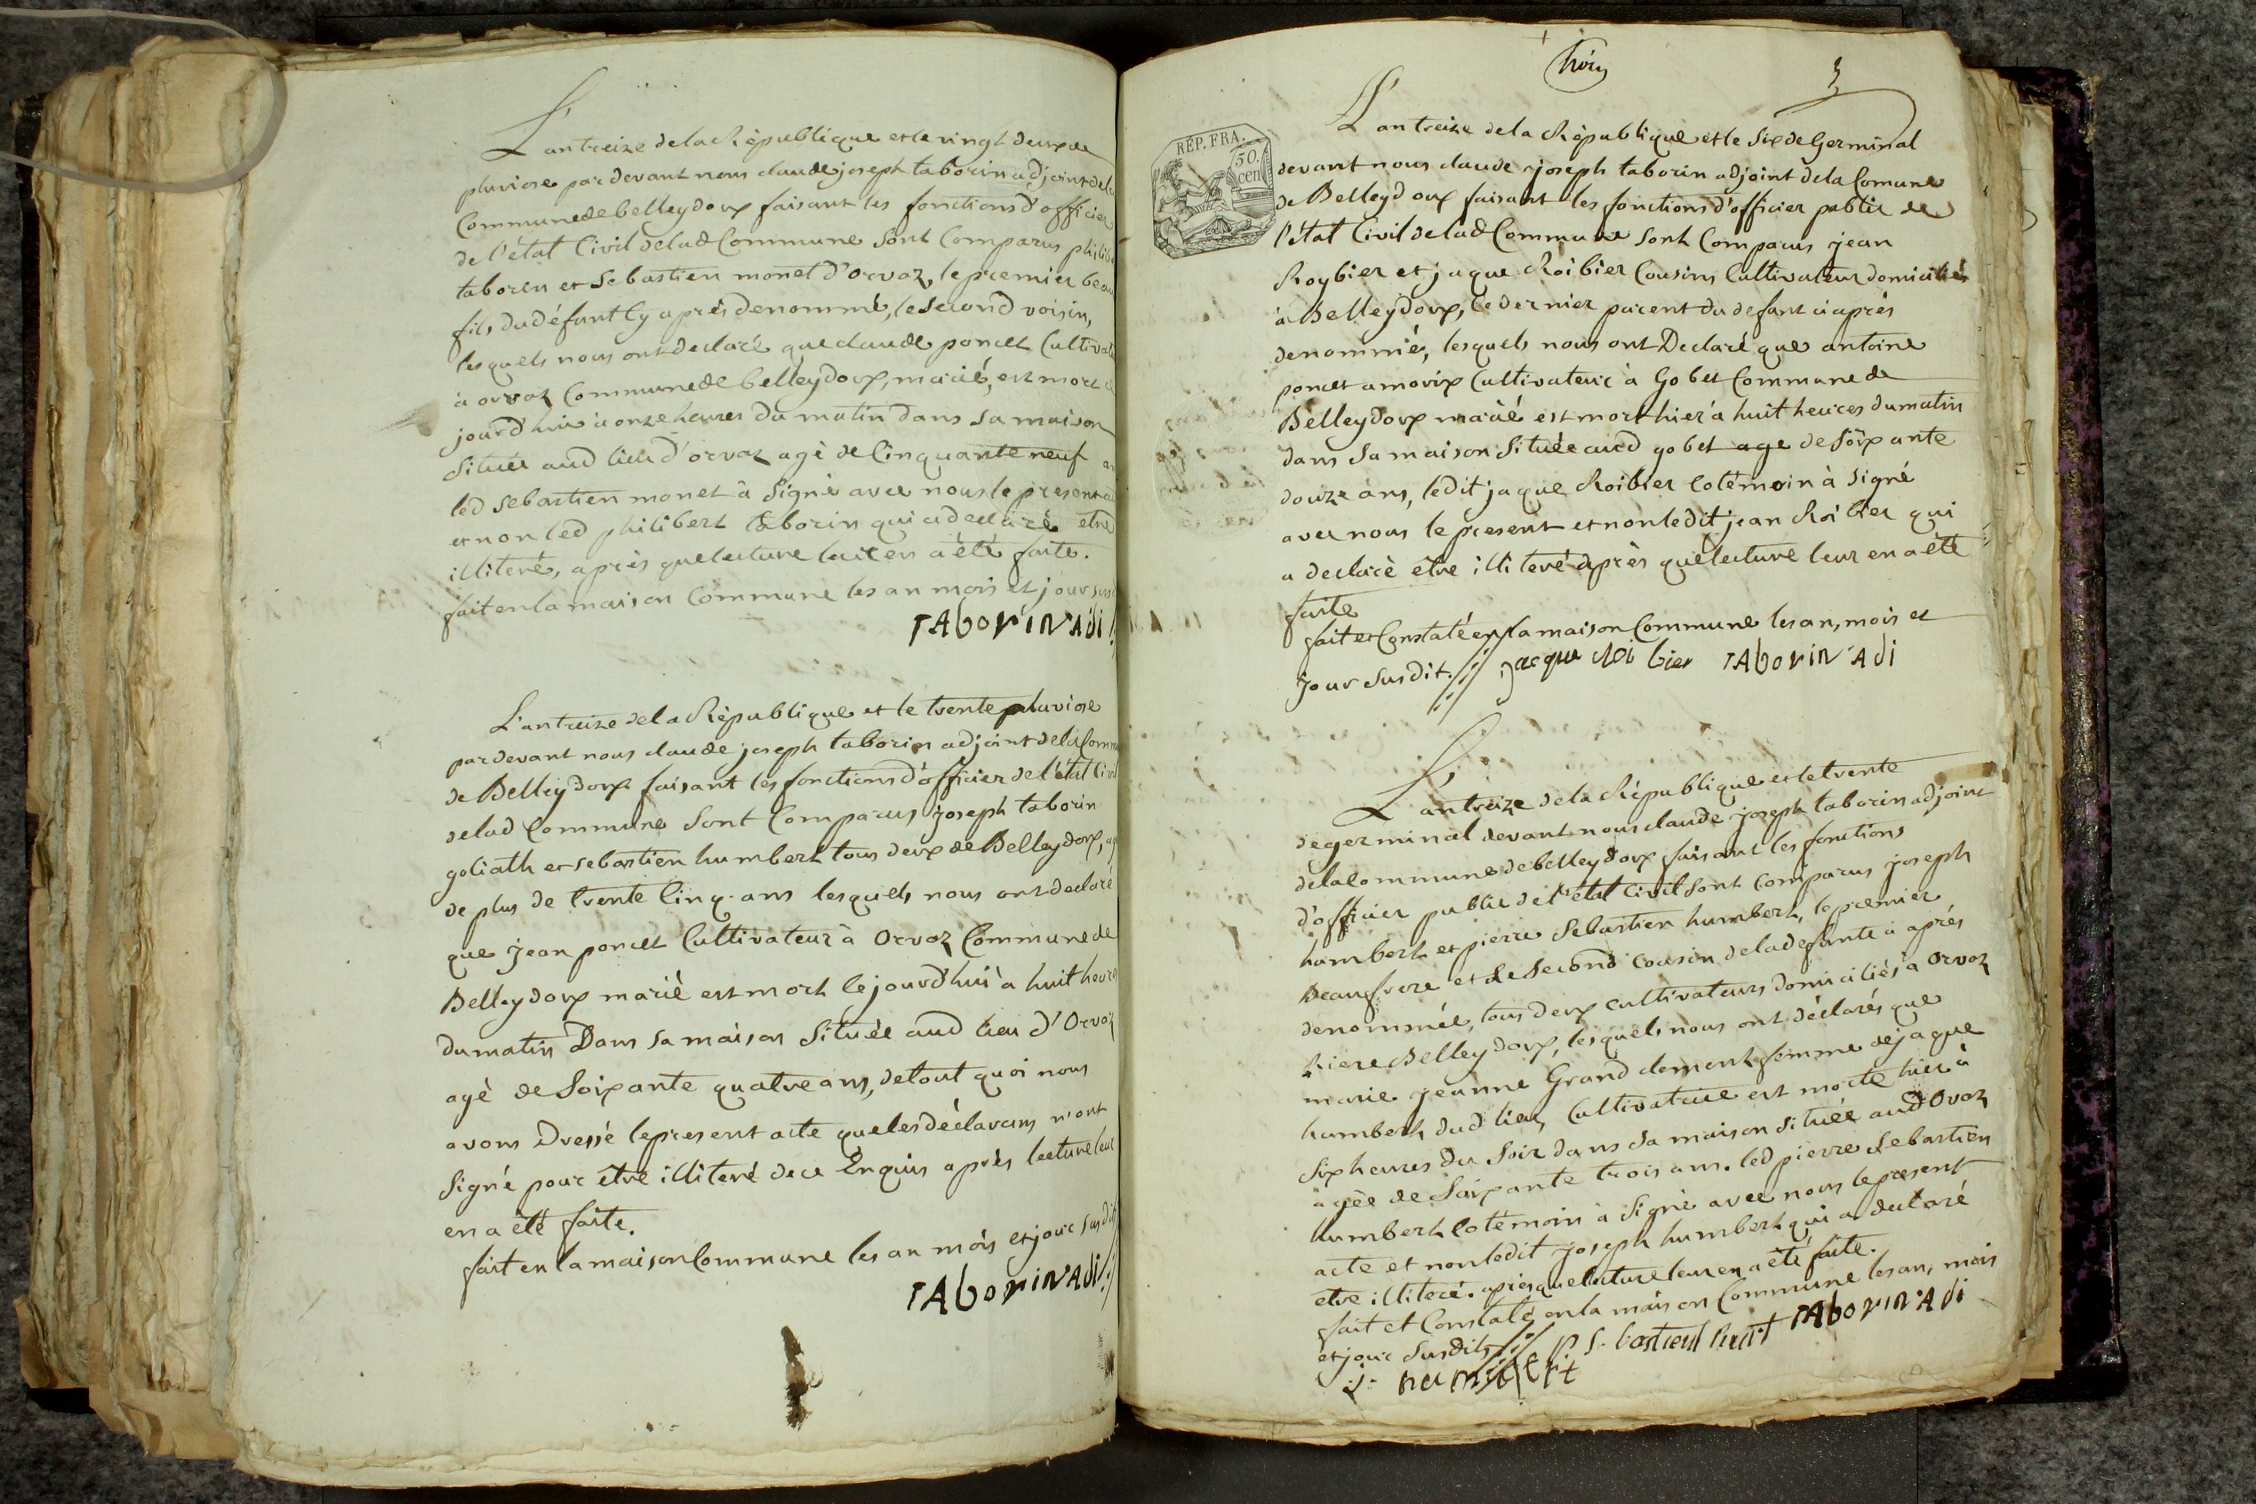 L'an treize de la République et le vingt deux de
pluviose par devant nous claude joseph taborin adjoint de la
Commune de belleydoux faisant les fonctions d'officier
de l'état Civil de lad Commune sont Comparus philib
taborin et Sebastien monet d'orvaz, le premier beau
fils du défunt Cy après denommé, le second voisin,
lesquels nous ont declaré que claude poncet Cultivat
à orvaz Commune de belleydoux, marié, est mort
jourd'hui à onze heures du matin dans sa maison
située aud lieu d'orvaz agé de Cinquante neuf an
led sebastien monet à signé avec nous le present
et non led philibert taborin qui a declaré etre
illiteré, après que lecture leur en a été faite.
fait en la maison Commune les an mois et jour sus
TAborin Adi
L'an treize de la République et le trente pluviose
par devant nous claude joseph taborin adjoint de la Comm
de Belleydoux faisant les fonctions d'officier de l'état Civil
de lad Commune sont Comparus joseph taborin
goliath et sebastien humbert tous deux de Belleydoux, ag
de plus de trente Cinq ans lesquels nous ont declaré
que jean poncet Cultivateur à Orvaz Commune de
Belleydoux marié est mort Cejourd'hui à huit heure
du matin Dans sa maison Située aud lieu d'Orvaz
agé de Soixante quatre ans, de tout quoi nous
avons Dressé le present acte que les déclarans n'ont
signé pour être illiteré de ce Enquis après lecture leur
en a été faite.
fait en la maison Commune les an mois et jour susdit
TAborin Adi
trois
3
RÉP. FRA.
50.
cen
L'an treize de la République et le Six de Germinal
devant nous claude joseph taborin adjoint de la Comune
de Belleydoux faisant les fonctions d'officier public de
l'état Civil de lad Commune sont Comparus jean
Roybier et jaque Roibier Cousins Cultivateur domiciliés
à Belleydoux, le dernier parent du defunt ci après
denommé, lesquels nous ont Declaré que antoine
poncet amovix Cultivateur à Gobet Commune de
Belleydoux marié est mort hier à huit heures du matin
dans sa maison située aud gobet age de Soixante
douze ans, ledit jaque Roibier Cotémoin à signé
avec nous le present et non ledit jean Roibier qui
a declaré être illiteré après que lecture leur en a été
faite
fait et Constaté en la maison Commune les an, mois et
jour susdit. Jacque Roibier TAborin Adi
L'an treize de la République et le trente
de germinal devant nous claude joseph taborin adjoint
de la Commune de belleydoux faisant les fonctions
d'officier public de l'état Civil sont Comparus joseph
humbert et pierre Sebastien humbert, le premier
Beaufrere et le second Cousin de la defunte ci après
denommée, tous deux cultivateurs domiciliés à Orvaz
riere Belleydoux, lesquels nous ont déclarés que
marie jeanne Grand clement femme de jaque
humbert dud lieu Cultivatrice est morte hier à
six heures du Soir dans sa maison située aud Orvaz
agée de Soixante trois ans. led pierre Sebastien
humbert Cotémoin à signé avec nous le present
acte et non ledit joseph humbert qui a declaré
etre illiteré. apres que lecture leur en a été faite.
fait et Constaté en la maison Commune les an, mois
et jour susdits TAborin Adi